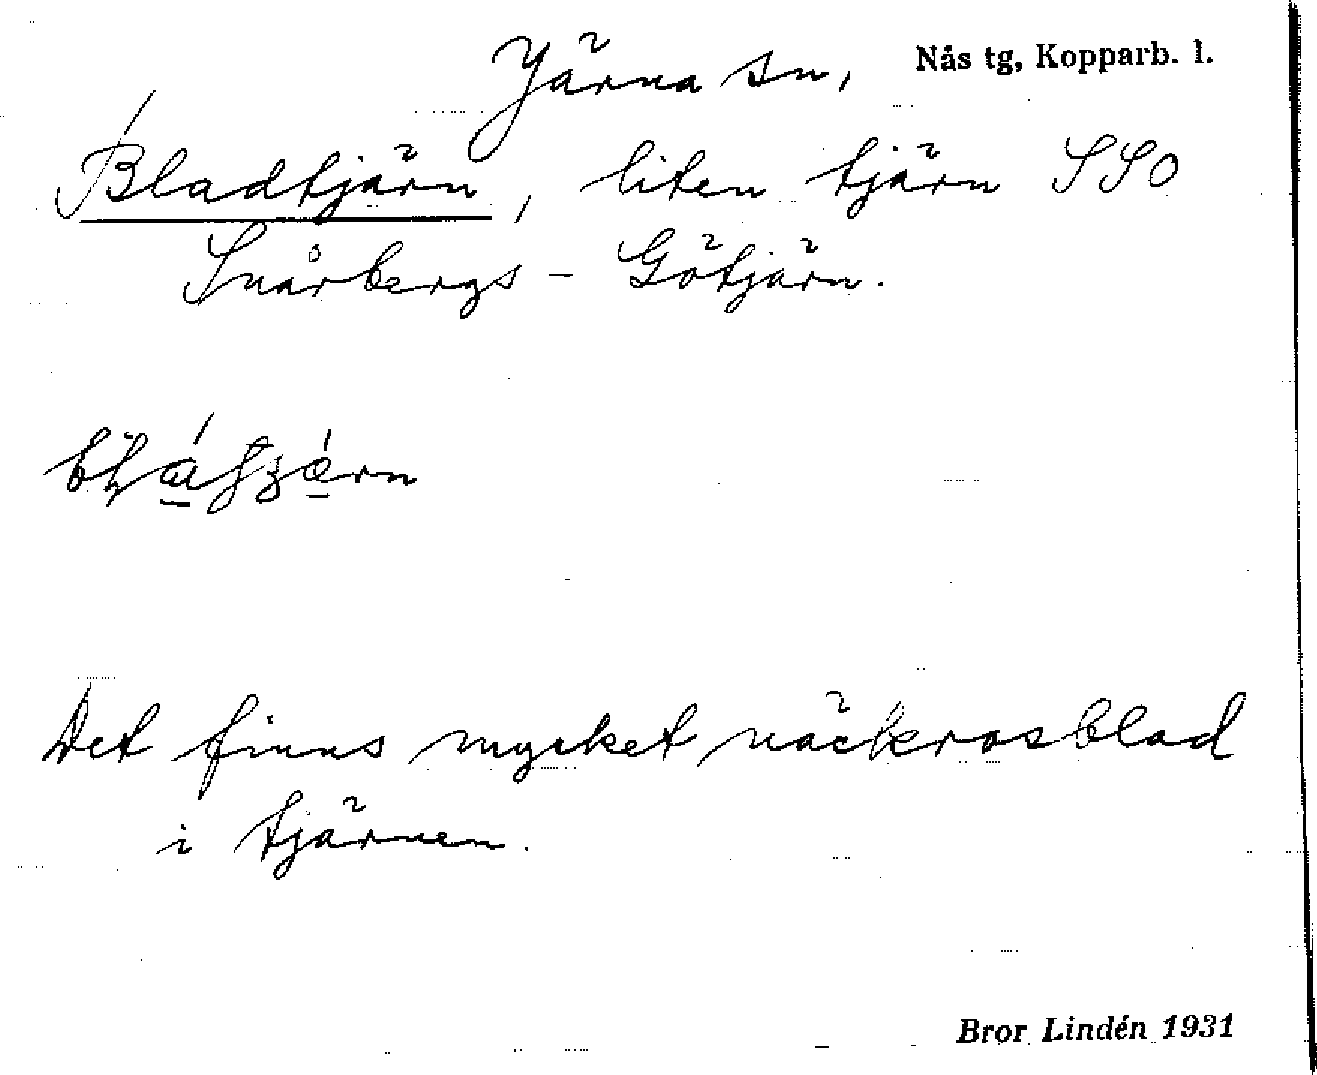 Järna sn, Nås tg, Kopparb. l.
Bladtjärn, liten tjärn SSO
Snårbergs - Götjärn.
Det finns mycket näckrosblad
i tjärnen.
Bror Lindén 1931